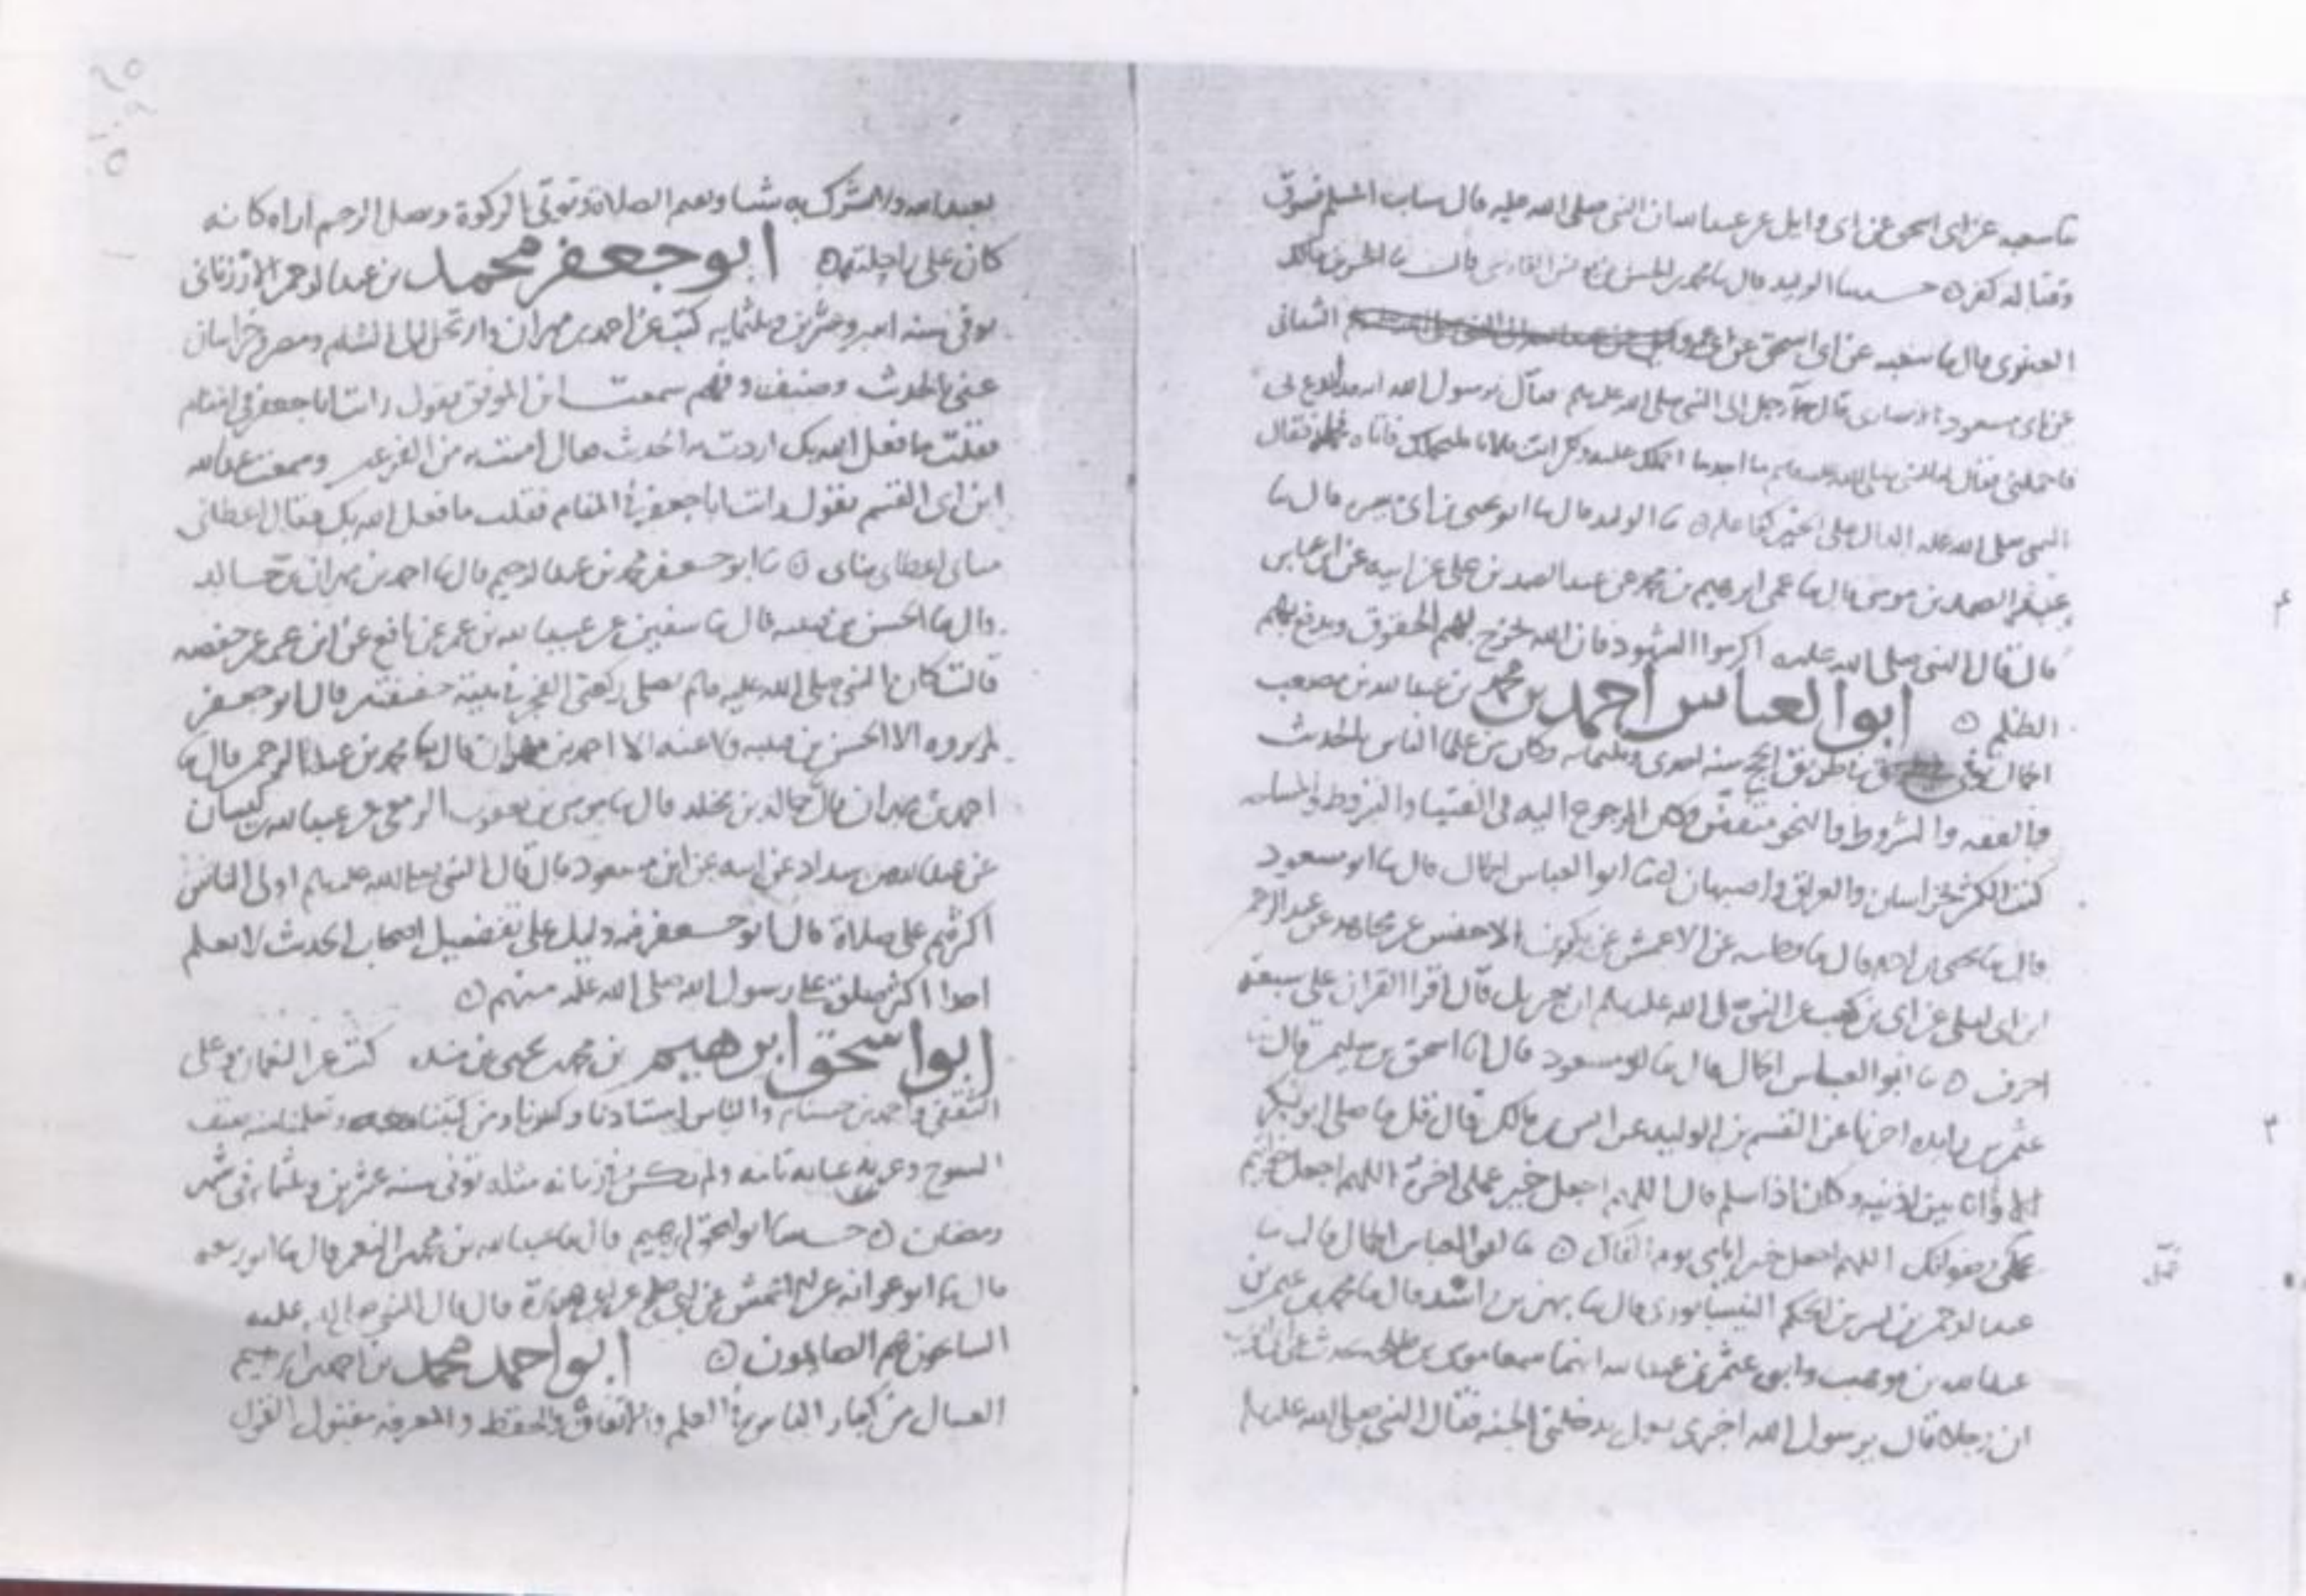 شعبه عن ابي اسحق عن ابي وايل عن عبدالله ان النبي صلى الله عليه قال سباب المسلم فسوق
وقتاله كفر ه حدثنا الوليد قال محمد بن الحسن قال
العنوي قال ما شعبه عن ابي اسحق عن الشيباني
عن ابي مسعود الانصاري قال جا رجل الى النبي صلى الله عليه وسلم فقال يرسول الله انه
فاحملني فقال له النبي صلى الله عليه وسلم ما اجد ما احملك عليه ولكن ايت فلانا فاتاه فحمله فقال
النبي صلى الله عليه الدال على الخير كفاعله ه ما الوليد قال ما ابو يحيى بن ابي قال ما
عبد الصمد بن موسى قال ما عمي ابرهيم بن محمد عن عبد الصمد بن علي عن ابيه عن ابن عباس
قال قال النبي صلى الله عليه اكرموا الشهود فان الله يخرج بهم الحقوق ويدفع بهم
الظلم ه ابو العباس احمد بن محمد بن عبد الله بن مصعب
الجمال توفي بطريق الحج سنه احدى وثلثمايه وكان من علما الناس بالحديث
والفقه والشروط والنحو وكان المرجوع اليه في الفتيا والشروط
كتب الكثير بخراسان والعراق واصبهان ما ابو العباس الجمال قال ما ابو مسعود
قال ما يحيى بن ادم قال ما عن الاعمش عن الاخنس عن مجاهد عن عبد الرحمن
ابن ابي ليلى عن ابي بن كعب عن النبي صلى الله عليه وسلم ان جبريل قال اقرا القران على سبعة
احرف ه ما ابو العباس الجمال قال ما ابو مسعود قال ما اسحق بن سليم قال
عثمن بن زايده اخرنا عن القسم بن الوليد عن انس بن مالك قال قل ما صلى ابو بكر
الا وانا بين اذنيه وكان اذا سلم قال اللهم اجعل خير عملي اخره اللهم اجعل خواتيم
عملي رضوانك اللهم اجعل خير ايامي يوم القاك ه ما ابو العباس الجمال قال ما
عبد الرحمن بن بشر بن الحكم النيسابوري قال ما بهز بن اسد قال ما محمد بن عثمن بن
عبد الله بن موهب وابوه عثمن بن عبد الله انهما سمعا موسى بن طلحه
ان رجلا قال يرسول الله اخبرني بعمل يدخلني الجنه فقال النبي صلى الله عليه وسلم
تعبد الله ولا تشرك به شيا وتقيم الصلاة وتوتي الزكوة وتصل الرحم اراه كانه
كان على راحلته ه ابو جعفر محمد بن عبد الرحمن الارزناني
توفي سنه اثنين وعشرين وثلثمايه كتب عن احمد بن مهران وارتحل الى الشام ومصر وخراسان
عني بالحديث وصنف وفهم سمعت ابن الموفق يقول رايت ابا جعفر في المنام
فقلت ما فعل الله بك اردت ه احدث قال امنت من الفزع وسمعت عبد الله
ابن ابي القسم يقول رايت ابا جعفر في المنام فقلت ما فعل الله بك فقال اعطاني
مناي اعطاني مناي ه ما ابو جعفر محمد بن عبد الرحيم قال ما احمد بن مهران بن خالد
قال ما الحسن بن قتيبه قال ما سفين عن عبيد الله بن عمر عن نافع عن ابن عمر عن حفصه
قالت كان النبي صلى الله عليه وسلم يصلي ركعتي الفجر في بيته خفيفتين قال ابو جعفر
لم يروه الا الحسن بن قتيبه ولا عنه الا احمد بن مهران قال ما محمد بن عبد الرحمن قال ما
احمد بن مهران قال خالد بن مخلد قال ما موسى بن يعقوب الزمعي عن عبد الله بن كيسان
عن عبد الله بن شداد عن ابيه عن ابن مسعود قال قال النبي صلى الله عليه وسلم اولى الناس
اكثرهم علي صلاة قال ابو جعفر فيه دليل على تفضيل اصحاب الحديث لا نعلم
احدا اكثر صلاة على رسول الله صلى الله عليه منهم ه
ابو اسحق ابرهيم بن محمد بن يحيى بن منده كتب عن النعمان وعلى
الثقفي واحمد بن والناس استاذنا
الشيوخ ولم يكن في زمانه مثله توفي سنه عشرين وثلثمايه في شهر
رمضان ه حدثنا ابو اسحق ابرهيم قال ما عبد الله بن محمد بن النعمن قال ما ابو ربيعه
قال ما ابو عوانه عن الاعمش عن ابي صالح عن ابي هريرة قال قال النبي صلى الله عليه
السايحون هم الصايمون ه ابو احمد محمد بن احمد بن ابرهيم
العسال من كبار الناس في العلم والاتقان والحفظ والمعرفه مقبول القول